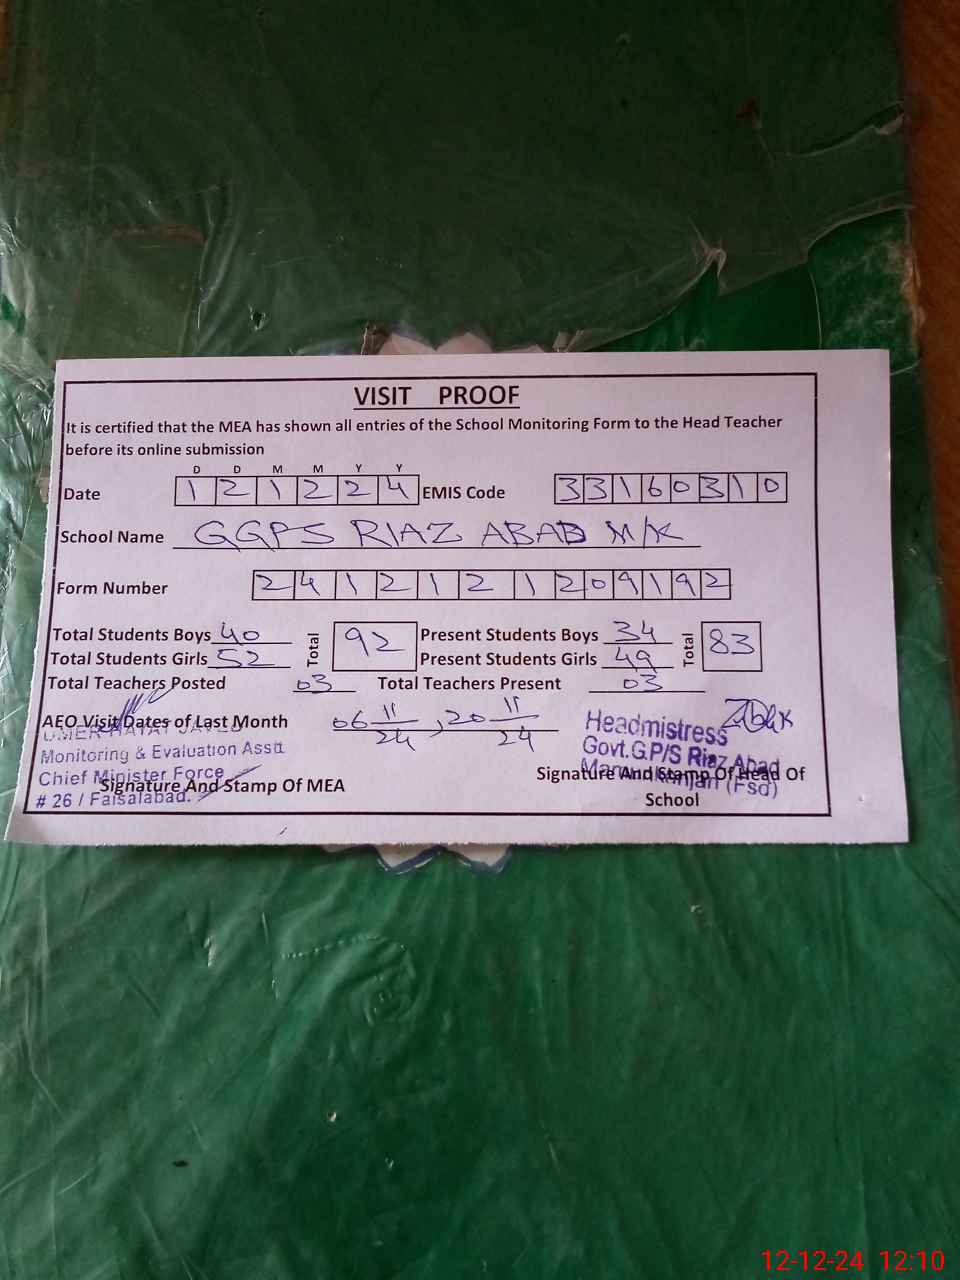 VISIT PROOF
It is certified that the MEA has shown all entries of the School Monitoring Form to the Head Teacher
before its online submission
D D M M Y Y
Date 1 2 1 2 2 4 EMIS Code 3 3 1 6 0 3 1 0
School Name GGPS RIAZ ABAD M/K
Form Number 2 4 1 2 1 2 1 2 0 9 1 9 2
Total Students Boys 40 Total 92 Present Students Boys 34 Total 83
Total Students Girls 52 Present Students Girls 49
Total Teachers Posted 03 Total Teachers Present 03
AEO Visit Dates of Last Month 06 11/24, 20 11/24
OMER HAYAT JAVED
Monitoring & Evaluation Asstt
Chief Minister Force
# 26 / Faisalabad.
Signature And Stamp Of MEA
Headmistress
Govt.G.P/S Riaz Abad
Mamunkanjan (Fsd)
Signature And Stamp Of Head Of
School
12-12-24 12:10